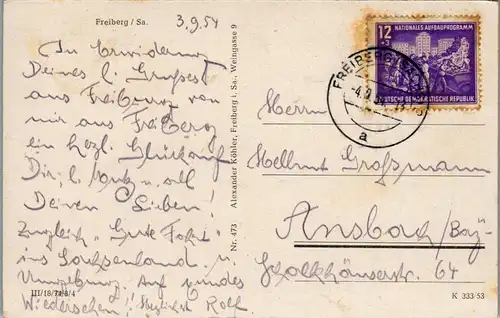 Freiberg / Sa.
3.9.54
In Erwiderung
Deines l. Grußes
aus Freiburg von
mir aus Freiberg
ein herzl. Glückauf
Dir, l. u. all
Deinen Lieben!
Zugleich "Gute Fahrt"
ins Sachsenland u.
Umgebung. Auf
Wiedersehen! Herzlichst Rolf
III/18/78/8/4
Nr. 473 Alexander Köhler, Freiberg i. Sa., Weingasse 9
12
+3
NATIONALES AUFBAUPROGRAMM
DEUTSCHE DEMOKRATISCHE REPUBLIK
FREIBERG
a
Herrn
Hellmut Großmann
Ansbach/Bay.
64
K 333/53